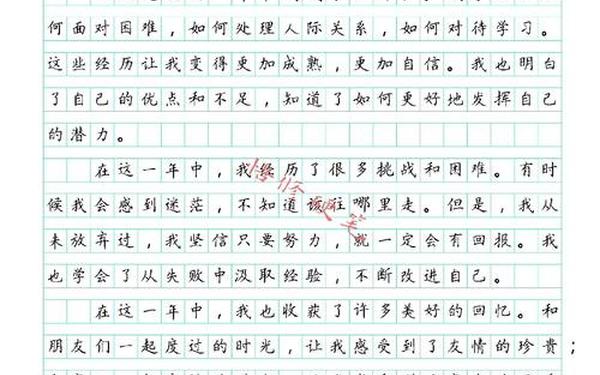 何面对困难，如何处理人际关系，如何对待学习。
这些经历让我变得更加成熟，更加自信。我也明白
了自己的优点和不足，知道了如何更好地发挥自己
的潜力。
在这一年中，我经历了很多挑战和困难。有时
候我会感到迷茫，不知道该往哪里走。但是，我从
未放弃过，我坚信只要努力，就一定会有回报。我
也学会了从失败中汲取经验，不断改进自己。
在这一年中，我也收获了许多美好的回忆。和
朋友们一起度过的时光，让我感受到了友情的珍贵；
悟修硬笔